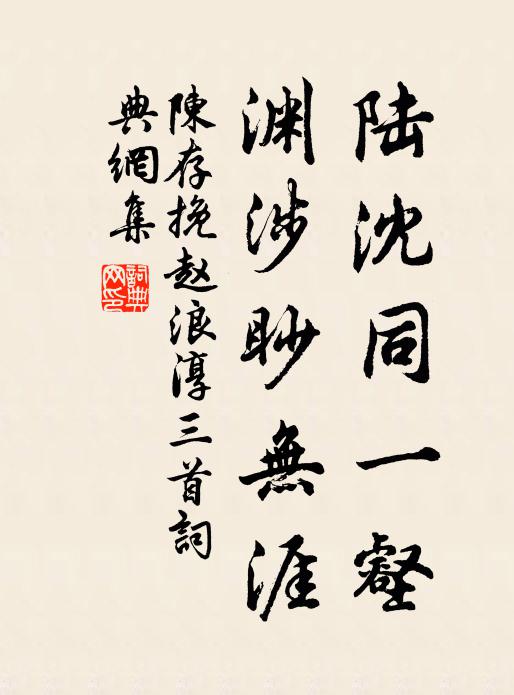 陆沈同一壑
渊涉眇無涯
陳存挽赵浪淳三首詞
典網集
詞典
网印